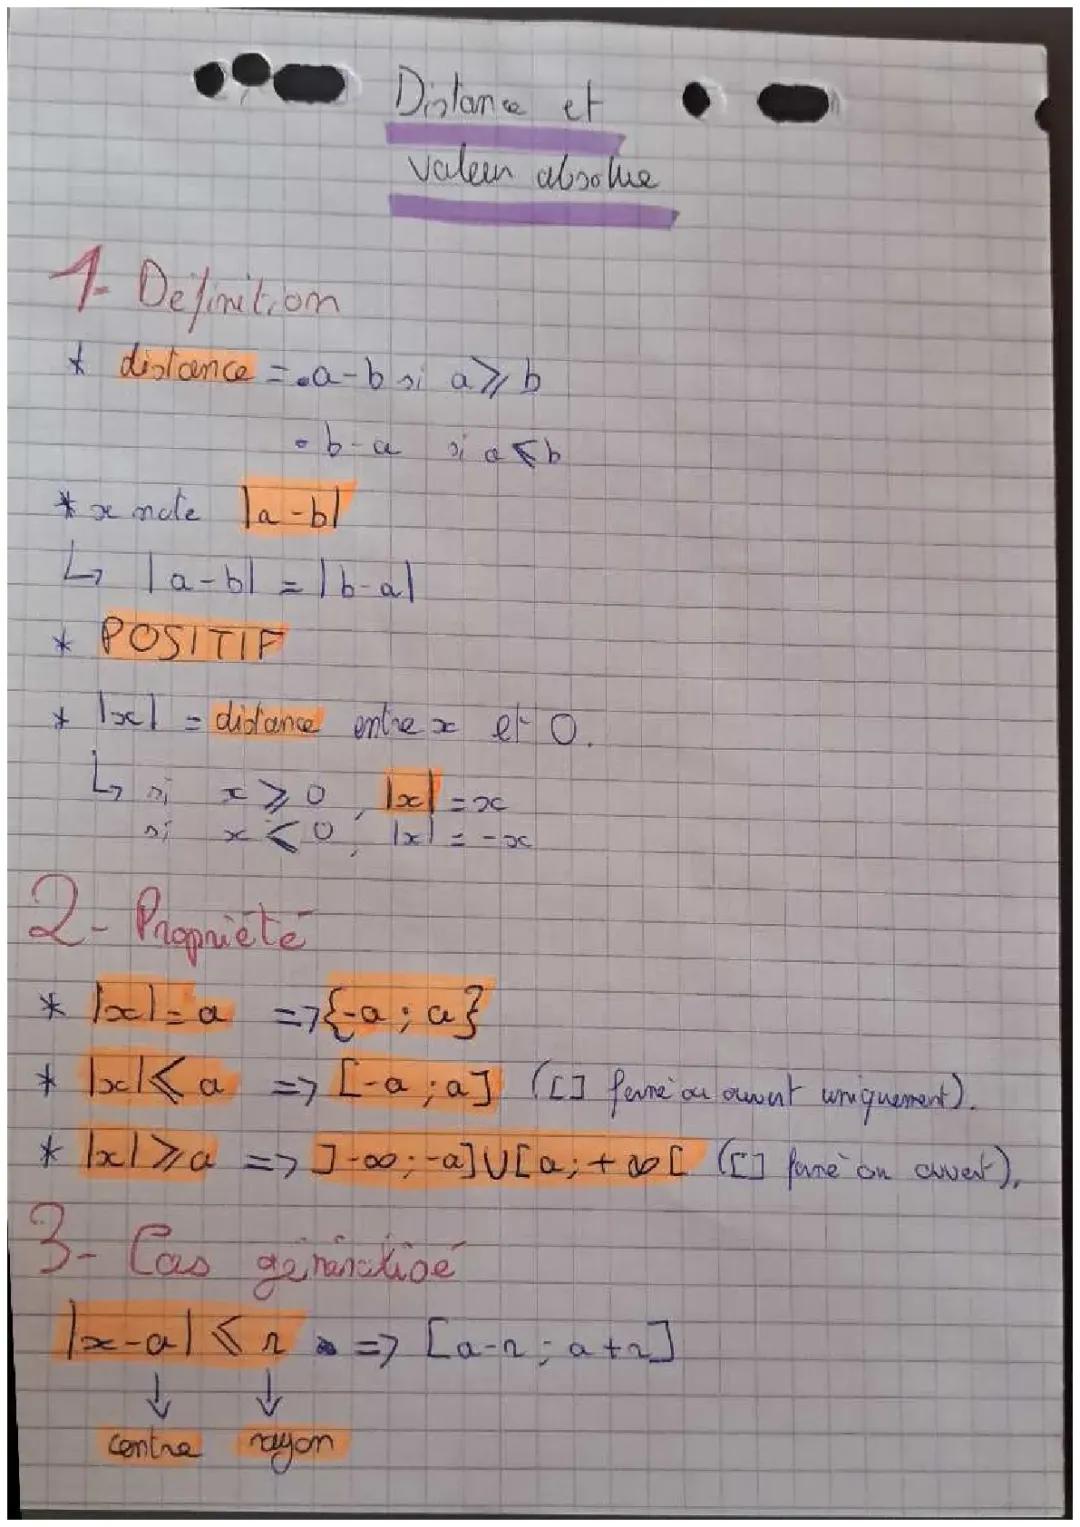 Distance et
valeur absolue
1- Définition
* distance = • a-b si a ⩾ b
• b-a si a ⩽ b
* se note |a-b|
↳ |a-b| = |b-a|
* POSITIF
* |x| = distance entre x et 0.
↳ si x ⩾ 0, |x| = x
si x ⩽ 0, |x| = -x
2- Propriété
* |x| = a => {-a ; a}
* |x| ⩽ a => [-a ; a] ([] fermé ou ouvert uniquement).
* |x| ⩾ a => ]-∞ ; -a] U [a ; +∞ [ ([] fermé ou ouvert).
3- Cas généralisé
|x-a| ⩽ r => [a-r ; a+r]
↓ ↓
centre rayon